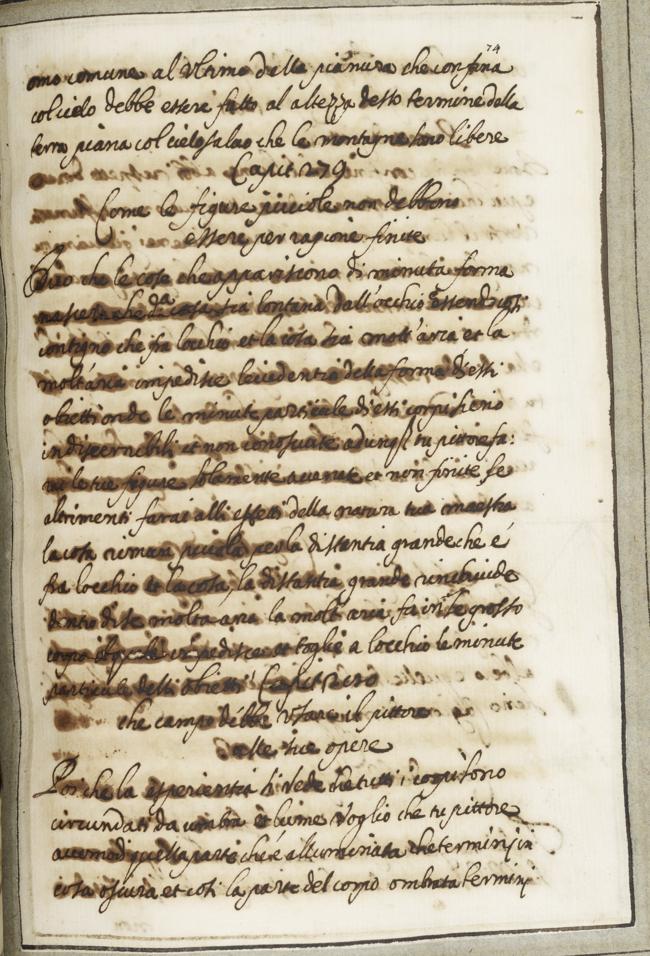 74
omo comune al ultimo della pianura che confina
col cielo debbe essere fatto al altezza desto termine della
terra piana col cielo saluo che le montagne sono libere
Capit 279
Come le figure picciole non debbono
essere per ragione finite
Dico che le cose che apparischono di minuta forma
nascera che da cosa sia lontana dall'occhio essendo cosi
conuiene che fra locchio et la cosa sia molt'aria et la
molt'aria impedisce leuidentia della forma d'essi
obietti onde le minute particule d'essi corpi sieno
indiscernibili et non conosciute adunque tu pittore fa:
rai le tue figure solamente acenate et non finite se
altrimenti farai alli effetti della natura tua maestra
la cosa riman piccola per la distantia grande che é
fra locchio et la cosa, la distantia grande rinchiude
dentro di se molta aria la molt'aria fa in se grosso
corpo il quale impedisce et toglie a locchio le minute
particule delli obietti Capit 280
che campo debbe usare il pittore
alle sue opere
Poi che la esperientia si vede che tutti i corpi sono
circundati da umbra et lume voglio che tu pittore
accomodi quella parte ch'é alluminata che termini in
cosa oscura et cosi la parte del corpo ombrata termini